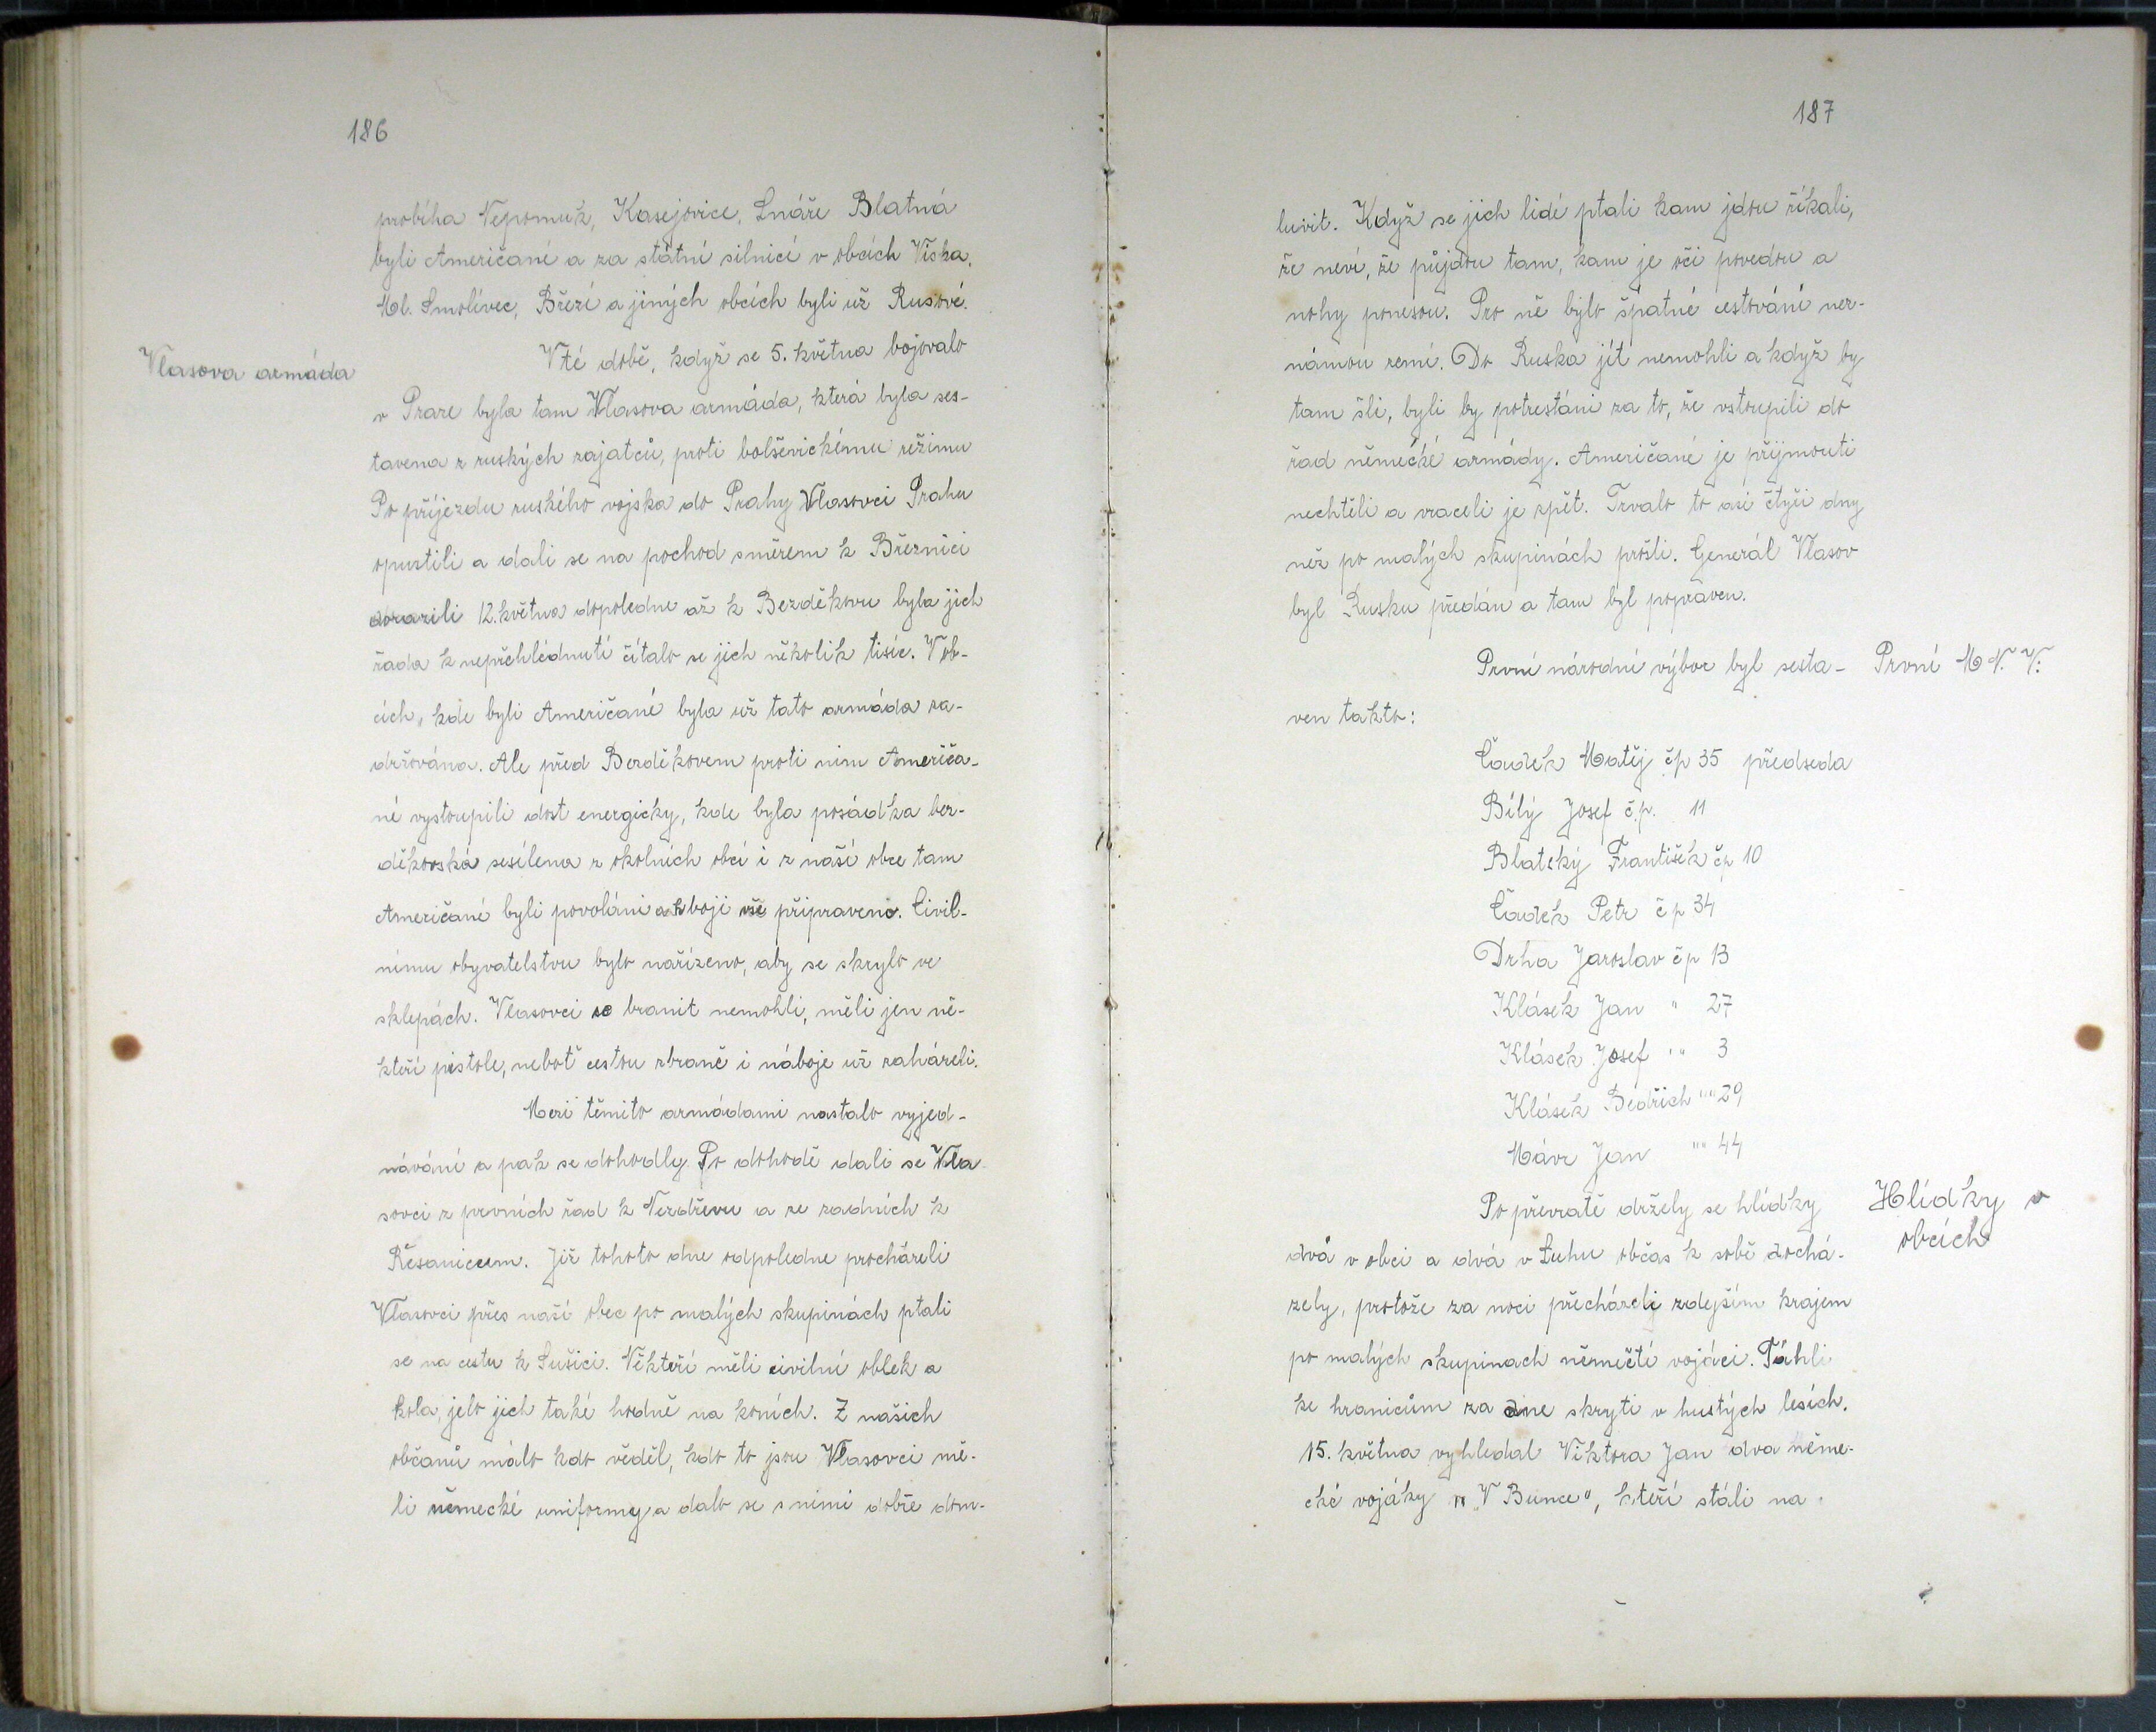 186
probíha Nepomuk, Kasejovice, Lnáře Blatná
byli Američané a za státní silnicí v obcích Víska,
Ml. Smolivec, Březí a jiných obcích byli už Rusové.
Vlasova armáda
V té době, když se 5. května bojovalo
v Praze byla tam Vlasova armáda, která byla ses-
tavena z ruských zajatců, proti bolševickému režimu
Po příjezdu ruského vojska do Prahy Vlasovci Prahu
opustili a dali se na pochod směrem k Březnici
dorazili 12. května dopoledne až k Bezděkovu byla jich
řada k nepřehlédnutí čítalo se jich několik tisíc. V ob-
cích, kde byli Američané byla už tato armáda za-
držována. Ale před Bezděkovem proti nim Američa-
né vystoupili dost energicky, kde byla posádka bez-
děkovská sesílena z okolních obcí i z naší obce tam
Američané byli povoláni a k boji vše připraveno. Civil-
nímu obyvatelstvu bylo nařízeno, aby se skrylo ve
sklepách. Vlasovci se branit nemohli, měli jen ně-
kteří pistole, neboť cestou zbraně i náboje už zaházeli.
Mezi těmito armádami nastalo vyjed-
návání a pak se dohodly Po dohodě dali se Vla-
sovci z prvních řad k Nezdřevu a ze zadních k
Řesanicem. Již tohoto dne odpoledne procházeli
Vlasovci přes naší obec po malých skupinách ptali
se na cestu k Sušici. Někteří měli civilní oblek a
kola, jelo jich také hodně na koních. Z našich
občanů málo kdo věděl, kdo to jsou Vlasovci mě-
li německé uniformy a dalo se s nimi dobře dom-
187
luvit. Když se jich lidé ptali kam jdou říkali,
že neví, že půjdou tam, kam je oči povedou a
nohy ponesou. Pro ně bylo špatné cestování nez-
námou zemí. Do Ruska jít nemohli a když by
tam šli, byli by potrestáni za to, že vstoupili do
řad německé armády. Američané je přijmouti
nechtěli a vraceli je zpět. Trvalo to asi čtyři dny
než po malých skupinách prošli. Generál Vlasov
byl Rusku předán a tam byl popraven.
První národní výbor byl sesta-
První M N. V:
ven takto:
Čadek Matěj čp 35 předseda
Bílý Josef č.p. 11
Blatský František čp 10
Čadek Petr čp 34
Drha Jaroslav čp 13
Klásek Jan " 27
Klásek Josef " " 3
Klásek Bedřich " " 29
Mávr Jan " " 44
Po převratě držely se hlídky
Hlídky v
obcích
dvá v obci a dvá v Luhu občas k sobě dochá-
zely, protože za noci přecházeli zdejším krajem
po malých skupinach němečtí vojáci. Táhli
ke hranicům za dne skryti v hustých lesích.
15. května vyhledal Viktora Jan dva něme-
cké vojáky v „V Bunce", kteří stáli na